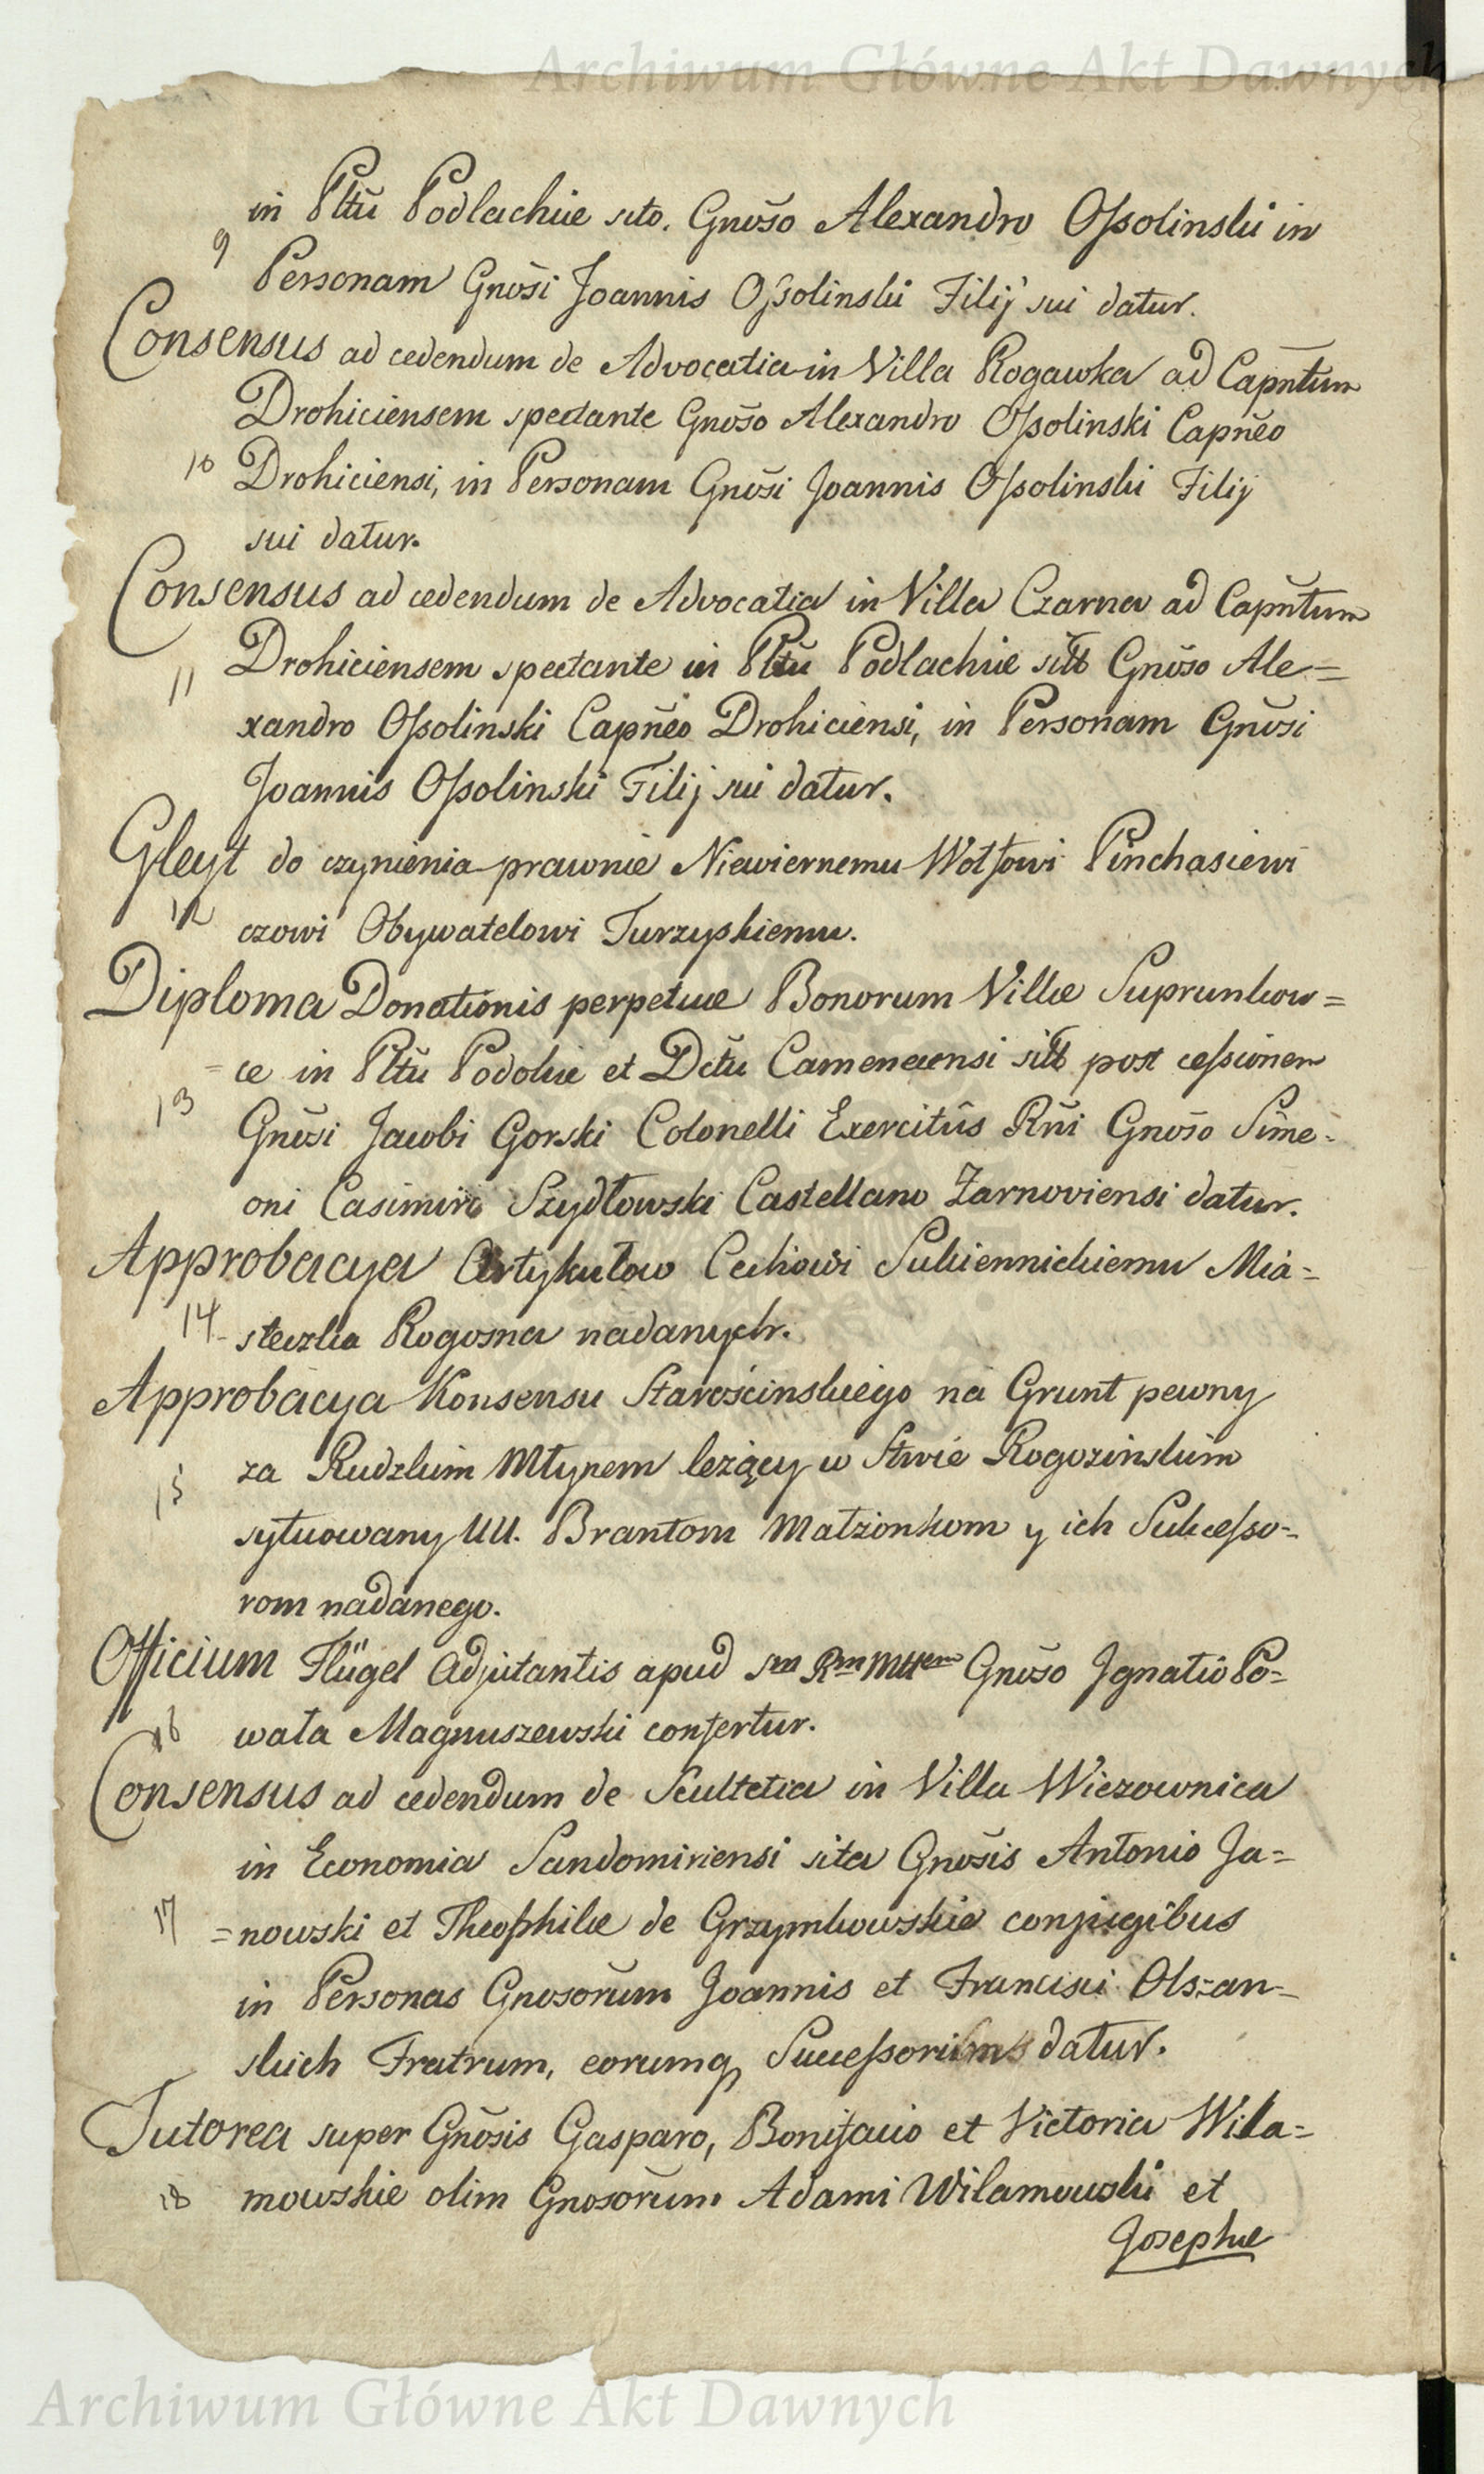 Archiwum Główne Akt Dawnych
in Pltũ Podlachiæ sito. Gnõso Alexandro Ossolinski in
9
Personam Gnõsi Joannis Ossolinski Filij sui datur.
Consensus ad cedendum de Advocatia in Villa Rogawka ad Capñtum
Drohiciensem spectante Gnõso Alexandro Ossolinski Capnẽo
10 Drohiciensi, in Personam Gnõsi Joannis Ossolinski Filij
sui datur.
Consensus ad cedendum de Advocatia in Villa Czarna ad Capñtum
11 Drohiciensem spectante in Pltũ Podlachiæ sitt Gnõso Ale=
xandro Ossolinski Capnẽo Drohiciensi, in Personam Gnõsi
Joannis Ossolinski Filij sui datur.
Gleyt do czynienia prawnie Niewiernemu Wolfowi Pinchasiewi
12 czowi Obywatelowi Turzyskiemu.
Diploma Donationis perpetuæ Bonorum Villæ Suprunkow=
=ce in Pltũ Podoliæ et Dctũ Camenecensi sitt post cessionem
13 Gnõsi Jacobi Gorski Colonelli Exercitûs Rñi Gnõso Sime=
oni Casimiro Szydłowski Castellano Żarnoviensi datur.
Approbacya Artykułow Cechowi Sukiennickiemu Mia=
14 steczka Rogozna nadanych.
Approbacya Konsensu Starościnskiego na Grunt pewny
15 za Rudzkim Młynem leżący w Stwie Rogozinskim
sytuowany UU. Brantom Małżonkom y ich Sukcesso=
rom nadanego.
Officium Flügel Adjutantis apud Sm Rm Mttem Gnõso Ignatio Po=
16 wała Magnuszewski confertur.
Consensus ad cedendum de Scultetia in Villa Wiezownica
in Economia Sandomiriensi sita Gnõsis Antonio Ja=
17 =nowski et Theophilæ de Grzymkowskie conjugibus
in Personas Gnosorũm Joannis et Francisci Olszan=
skich Fratrum, eorumq Successorum datur.
Tutorea super Gnõsis Gasparo, Bonifacio et Victoria Wila=
18 mowskie olim Gnosorũm Adami Wilamowski et
Josephæ
Archiwum Główne Akt Dawnych